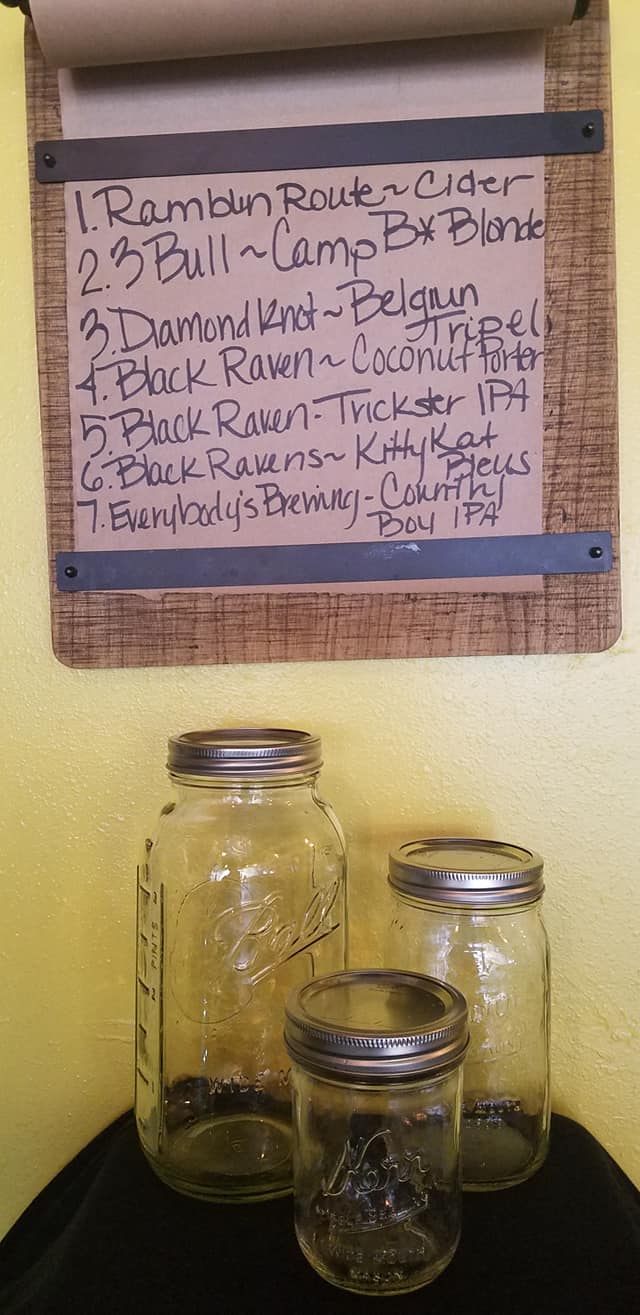 1. Ramblin Route ~ Cider
2. 3 Bull ~ Camp B* Blonde
3. Diamond Knot ~ Belgiun
Tripel
4. Black Raven ~ Coconut Porter
5. Black Raven - Trickster IPA
6. Black Ravens ~ Kitty Kat
Bleus
7. Everybody's Brewing - Country
Boy IPA
Ball
PINTS
WIDE M
Kerr
WIDE MOUTH
MASON